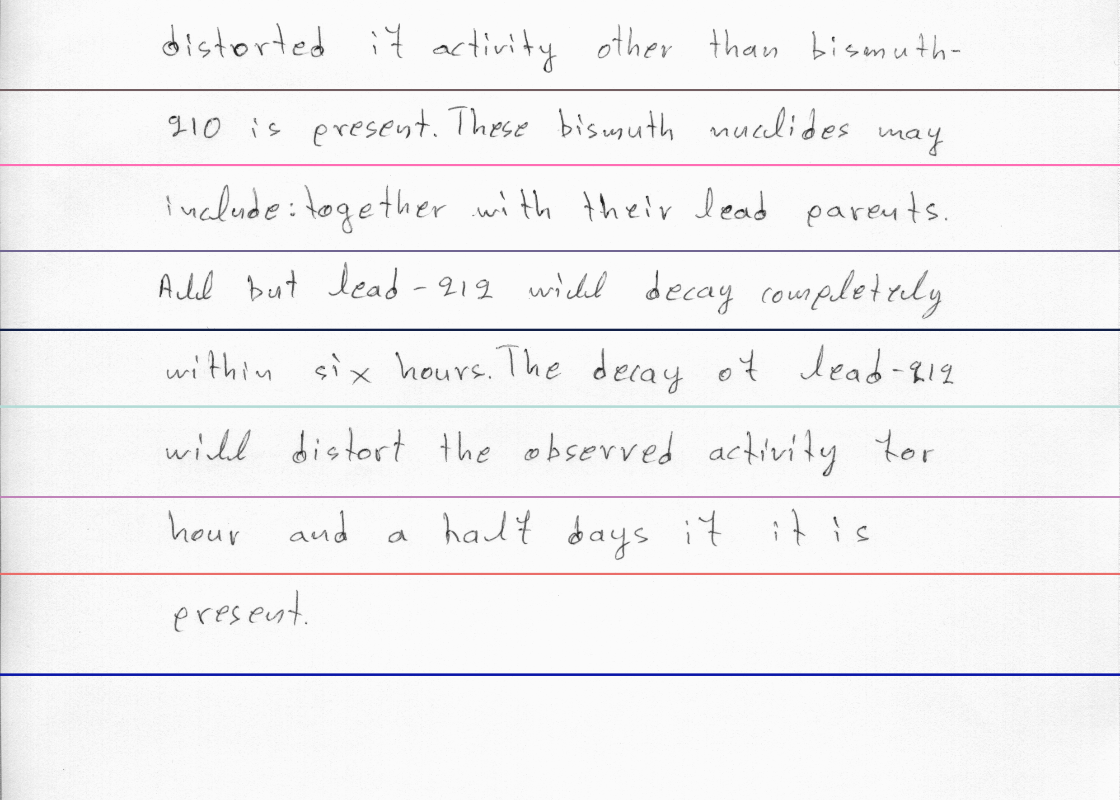 distorted if activity other than bismuth-
210 is present. These bismuth nuclides may
include: together with their lead parents.
All but lead-212 will decay completely
within six hours. The decay of lead-212
will distort the observed activity for
hour and a half days if it is
present.